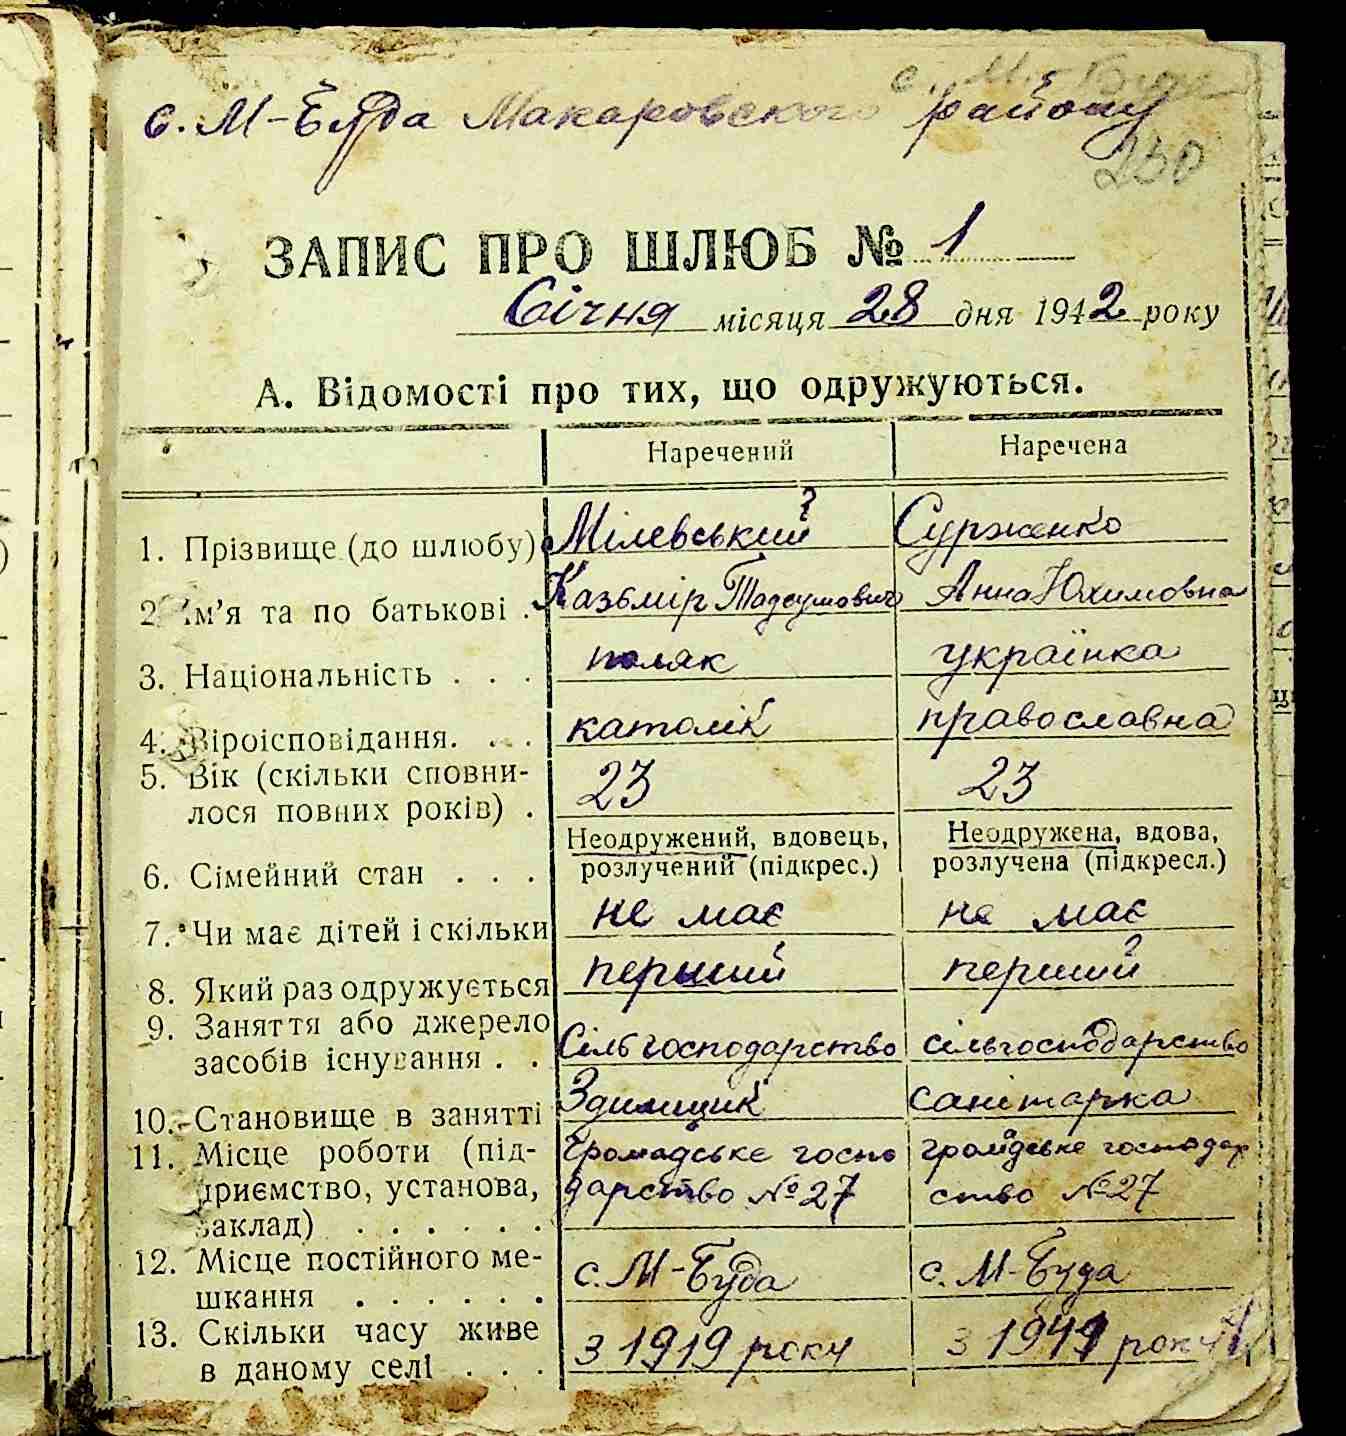 с. М-Буда
с. М-Буда Макаровского району
230
ЗАПИС ПРО ШЛЮБ № 1
Січня місяця 28 дня 1942 року
А. Відомості про тих, що одружуються.
Наречений Наречена
1. Прізвище (до шлюбу) Мілевський Сурженко
2. Ім'я та по батькові . Казьмір Тадеумович Анна Юхимовна
3. Національність . . . поляк українка
4. Віроісповідання. . . католік православна
5. Вік (скільки сповни-
лося повних років) . 23 23
6. Сімейний стан . . . Неодружений, вдовець, Неодружена, вдова,
розлучений (підкрес.) розлучена (підкресл.)
7. Чи має дітей і скільки не має не має
8. Який раз одружується перший перший
9. Заняття або джерело
засобів існування . . Сільгосподарство сільгосподарство
10. Становище в занятті Їздимщик санітарка
11. Місце роботи (під- Громадське госпо громадське господар
приємство, установа, дарство № 27 ство № 27
заклад) . . . . . .
12. Місце постійного ме-
шкання . . . . . . с. М-Буда с. М-Буда
13. Скільки часу живе
в даному селі . . . з 1919 року з 1941 року